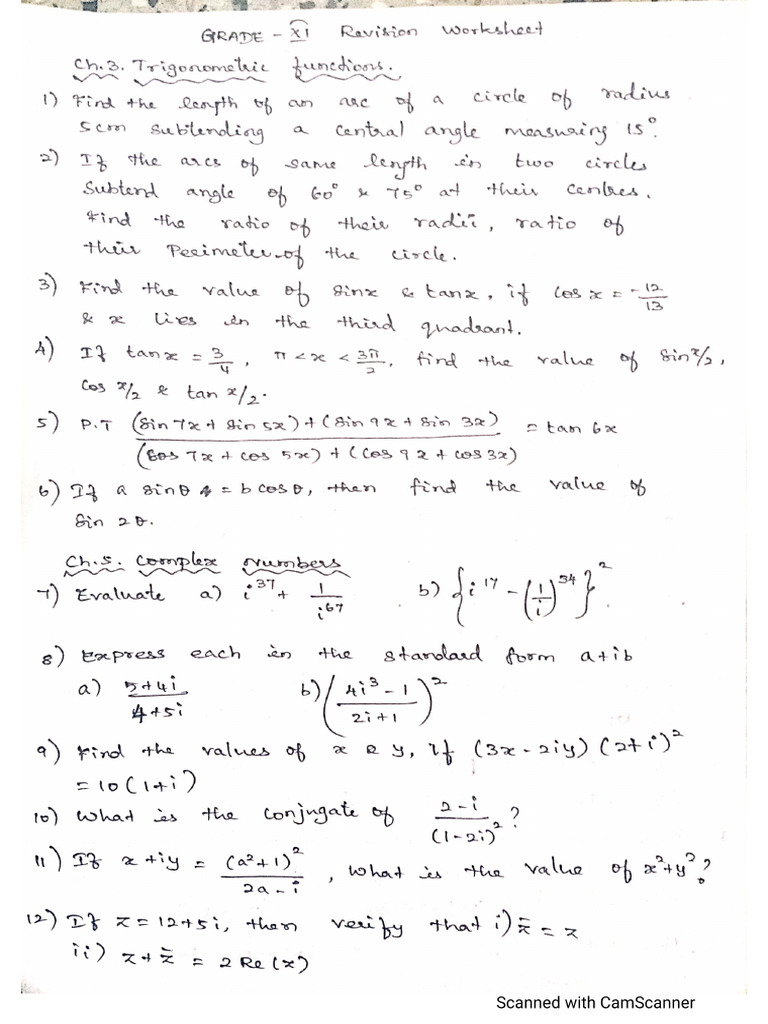 GRADE - XI Revision Worksheet
Ch.3. Trigonometric functions.
1) Find the length of an arc of a circle of radius
5cm subtending a central angle measuring 15°.
2) If the arcs of same length in two circles
Subtend angle of 60° & 75° at their centres.
Find the ratio of their radii, ratio of
their Perimeter of the circle.
3) Find the value of sinx & tanx, if cos x = -12/13
& x lies in the third quadrant.
4) If tanx = 3/4, π < x < 3π/2, find the value of sin x/2,
cos x/2 & tan x/2.
5) P.T (sin 7x + sin 5x) + (sin 9x + sin 3x) / (cos 7x + cos 5x) + (cos 9x + cos 3x) = tan 6x
6) If a sinθ = b cosθ, then find the value of
sin 2θ.
Ch.5. Complex Numbers
7) Evaluate a) i³⁷ + 1/i⁶⁷ b) {i¹⁷ - (1/i)³⁴}²
8) Express each in the standard form a+ib
a) 5+4i / 4+5i b) (4i³ - 1 / 2i+1)²
9) Find the values of x & y, if (3x - 2iy) (2+i)²
= 10(1+i)
10) What is the conjugate of 2-i / (1-2i)² ?
11) If x+iy = (a²+1)² / 2a-i, what is the value of x²+y²?
12) If z = 12+5i, then verify that i) z̿ = z
ii) z + z̄ = 2 Re(x)
Scanned with CamScanner